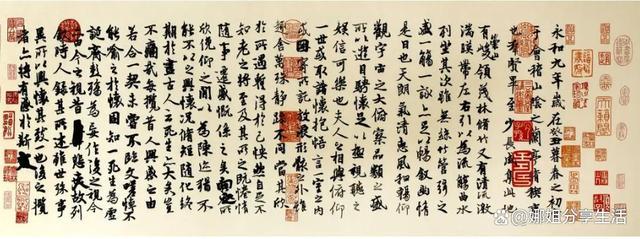 永和九年歲在癸丑暮春之初會
于會稽山陰之蘭亭脩禊事
也群賢畢至少長咸集此地
有崇山峻領茂林脩竹又有清流激
湍暎帶左右引以為流觴曲水
列坐其次雖無絲竹管弦之
盛一觴一詠亦足以暢敘幽情
是日也天朗氣清惠風和暢仰
觀宇宙之大俯察品類之盛
所以遊目騁懷足以極視聽之
娛信可樂也夫人之相與俯仰
一世或取諸懷抱悟言一室之內
或因寄所託放浪形骸之外雖
趣舍萬殊靜躁不同當其欣
於所遇暫得於己怏然自足不
知老之將至及其所之既惓情
隨事遷感慨係之矣向之所
欣俛仰之閒以為陳迹猶不
能不以之興懷況脩短隨化終
期於盡古人云死生亦大矣豈
不痛哉每攬昔人興感之由
若合一契未嘗不臨文嗟悼不
能喻之於懷固知一死生為虛
誕齊彭殤為妄作後之視今
亦由今之視昔悲夫故列
敘時人錄其所述雖世殊事
異所以興懷其致一也後之攬
者亦將有感於斯文
@娜姐分享生活